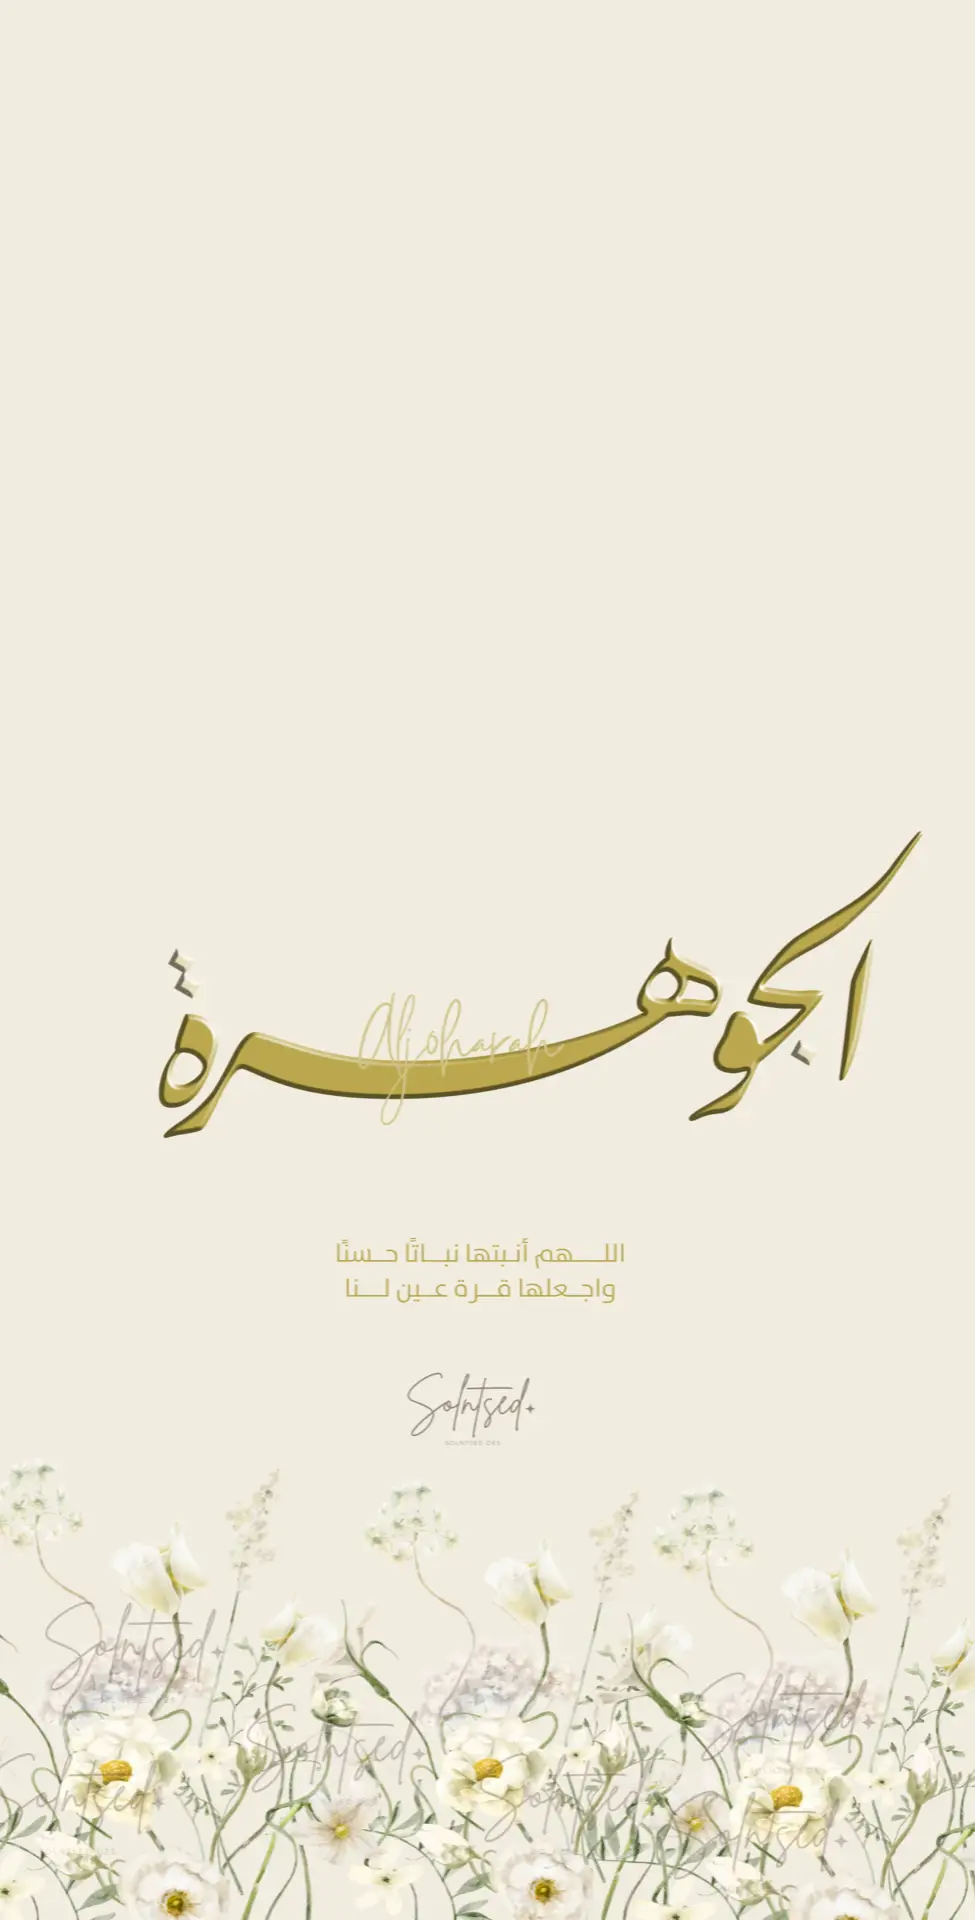 الجوهرة
Aljoharah
اللـــهم أنـبتها نبـــاتًا حــسنًا
واجــعلها قـــرة عــين لـــنا
Solntsed
SOLNTSED.DES
Solntsed
Solntsed
Solntsed
Solntsed
Solntsed
Solntsed